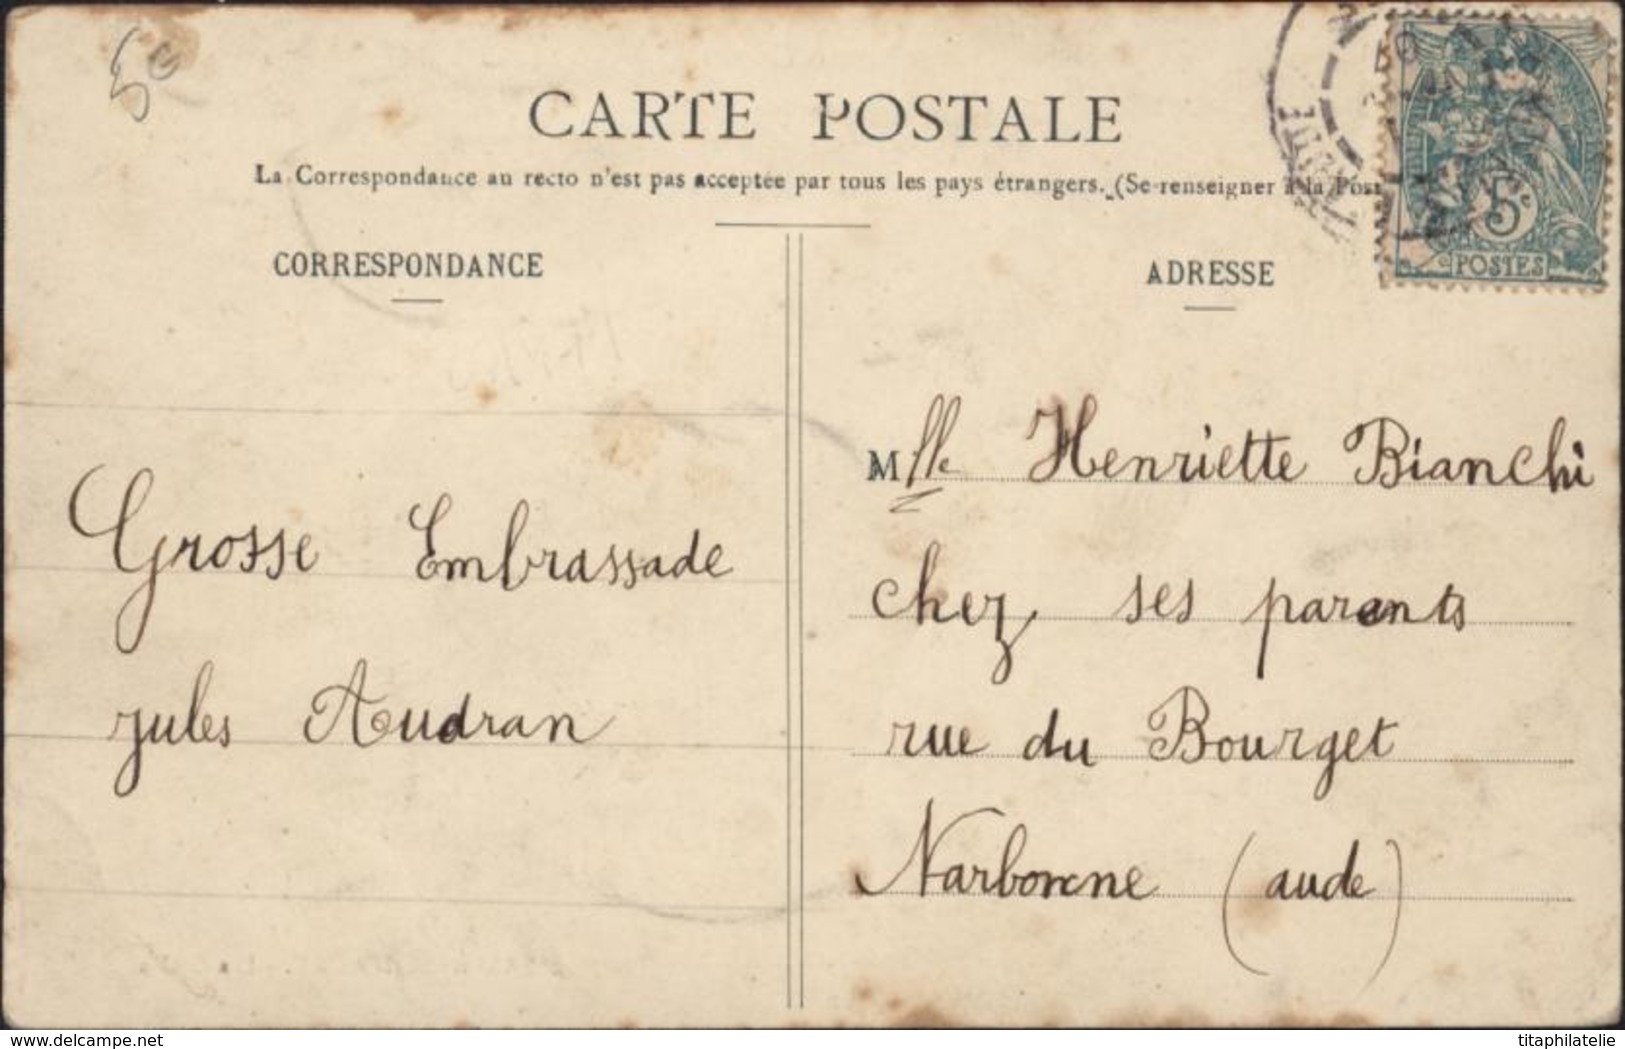 5c
CARTE POSTALE
La Correspondance au recto n'est pas acceptée par tous les pays étrangers. (Se renseigner à la Post
CORRESPONDANCE
ADRESSE
5c
POSTES
Grosse Embrassade
jules Audran
Mlle Henriette Bianchi
chez ses parents
rue du Bourget
Narbonne (aude)
delcampe.net
titaphilatelie